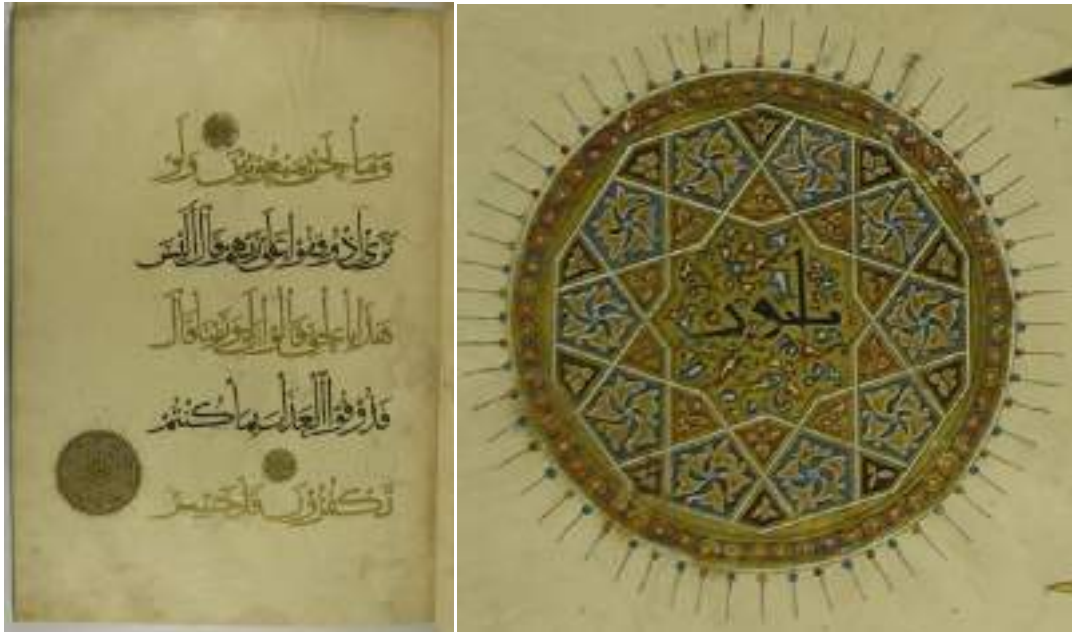 وَمَا نَحْنُ بِمَبْعُوثِينَ وَلَوْ
تَرَى إِذْ وُقِفُوا عَلَى رَبِّهِمْ قَالَ أَلَيْسَ
هَذَا بِالْحَقِّ قَالُوا بَلَى وَرَبِّنَا قَالَ
فَذُوقُوا الْعَذَابَ بِمَا كُنْتُمْ
تَكْفُرُونَ قَدْ خَسِرَ